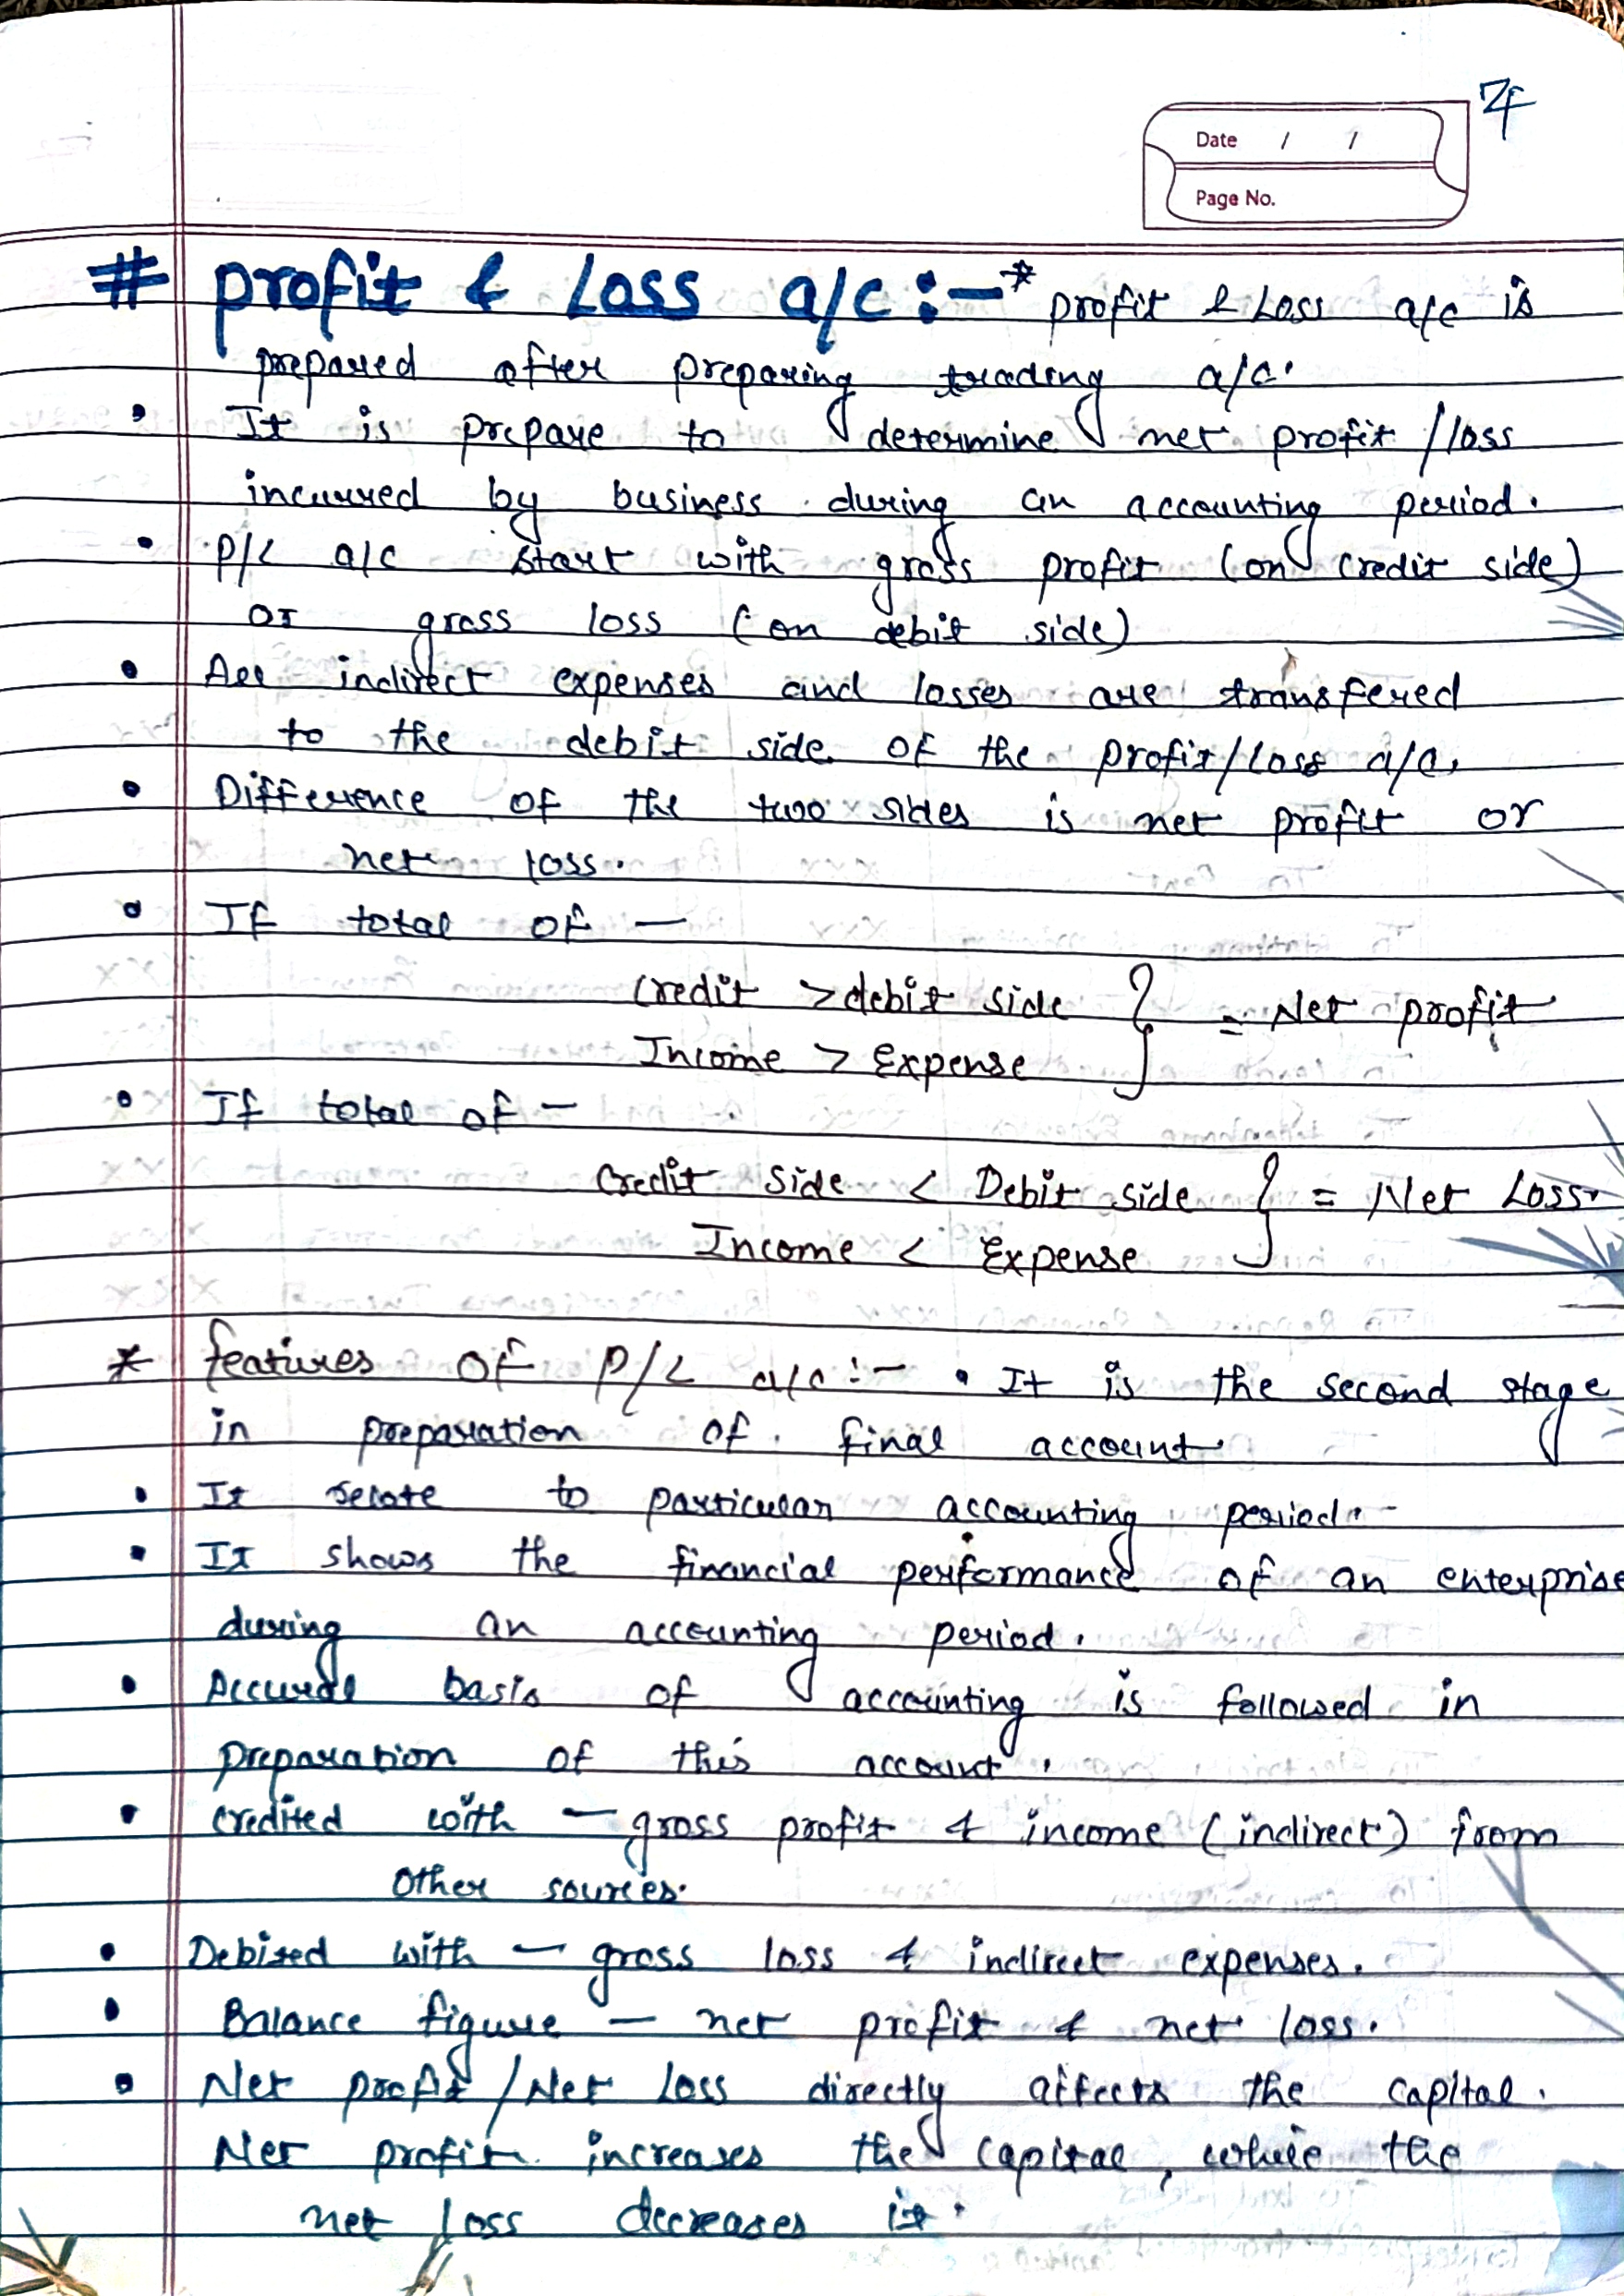 Date / /
Page No.
# profit & Loss a/c :- * profit & Loss a/c is
prepared after preparing trading a/c.
• It is prepare to determine net profit / loss
incurred by business during an accounting period.
• P/L a/c start with gross profit (on credit side)
or gross loss (on debit side)
• All indirect expenses and losses are transfered
to the debit side of the profit/loss a/c.
• Difference of the two sides is net profit or
net loss.
• If total of —
Credit > debit side } = Net profit
Income > Expense
• If total of —
Credit side < Debit side } = Net Loss.
Income < Expense
* features of P/L a/c :- • It is the second stage
in preparation of final account.
• It relate to particular accounting period.
• It shows the financial performance of an enterprise
during an accounting period.
• Accural basis of accounting is followed in
preparation of this account.
• credited with — gross profit & income (indirect) from
other sources.
• Debited with — gross loss & indirect expenses.
• Balance figure — net profit & net loss.
• Net profit / Net Loss directly affects the capital.
Net profit increases the capital, while the
net loss decreases it.